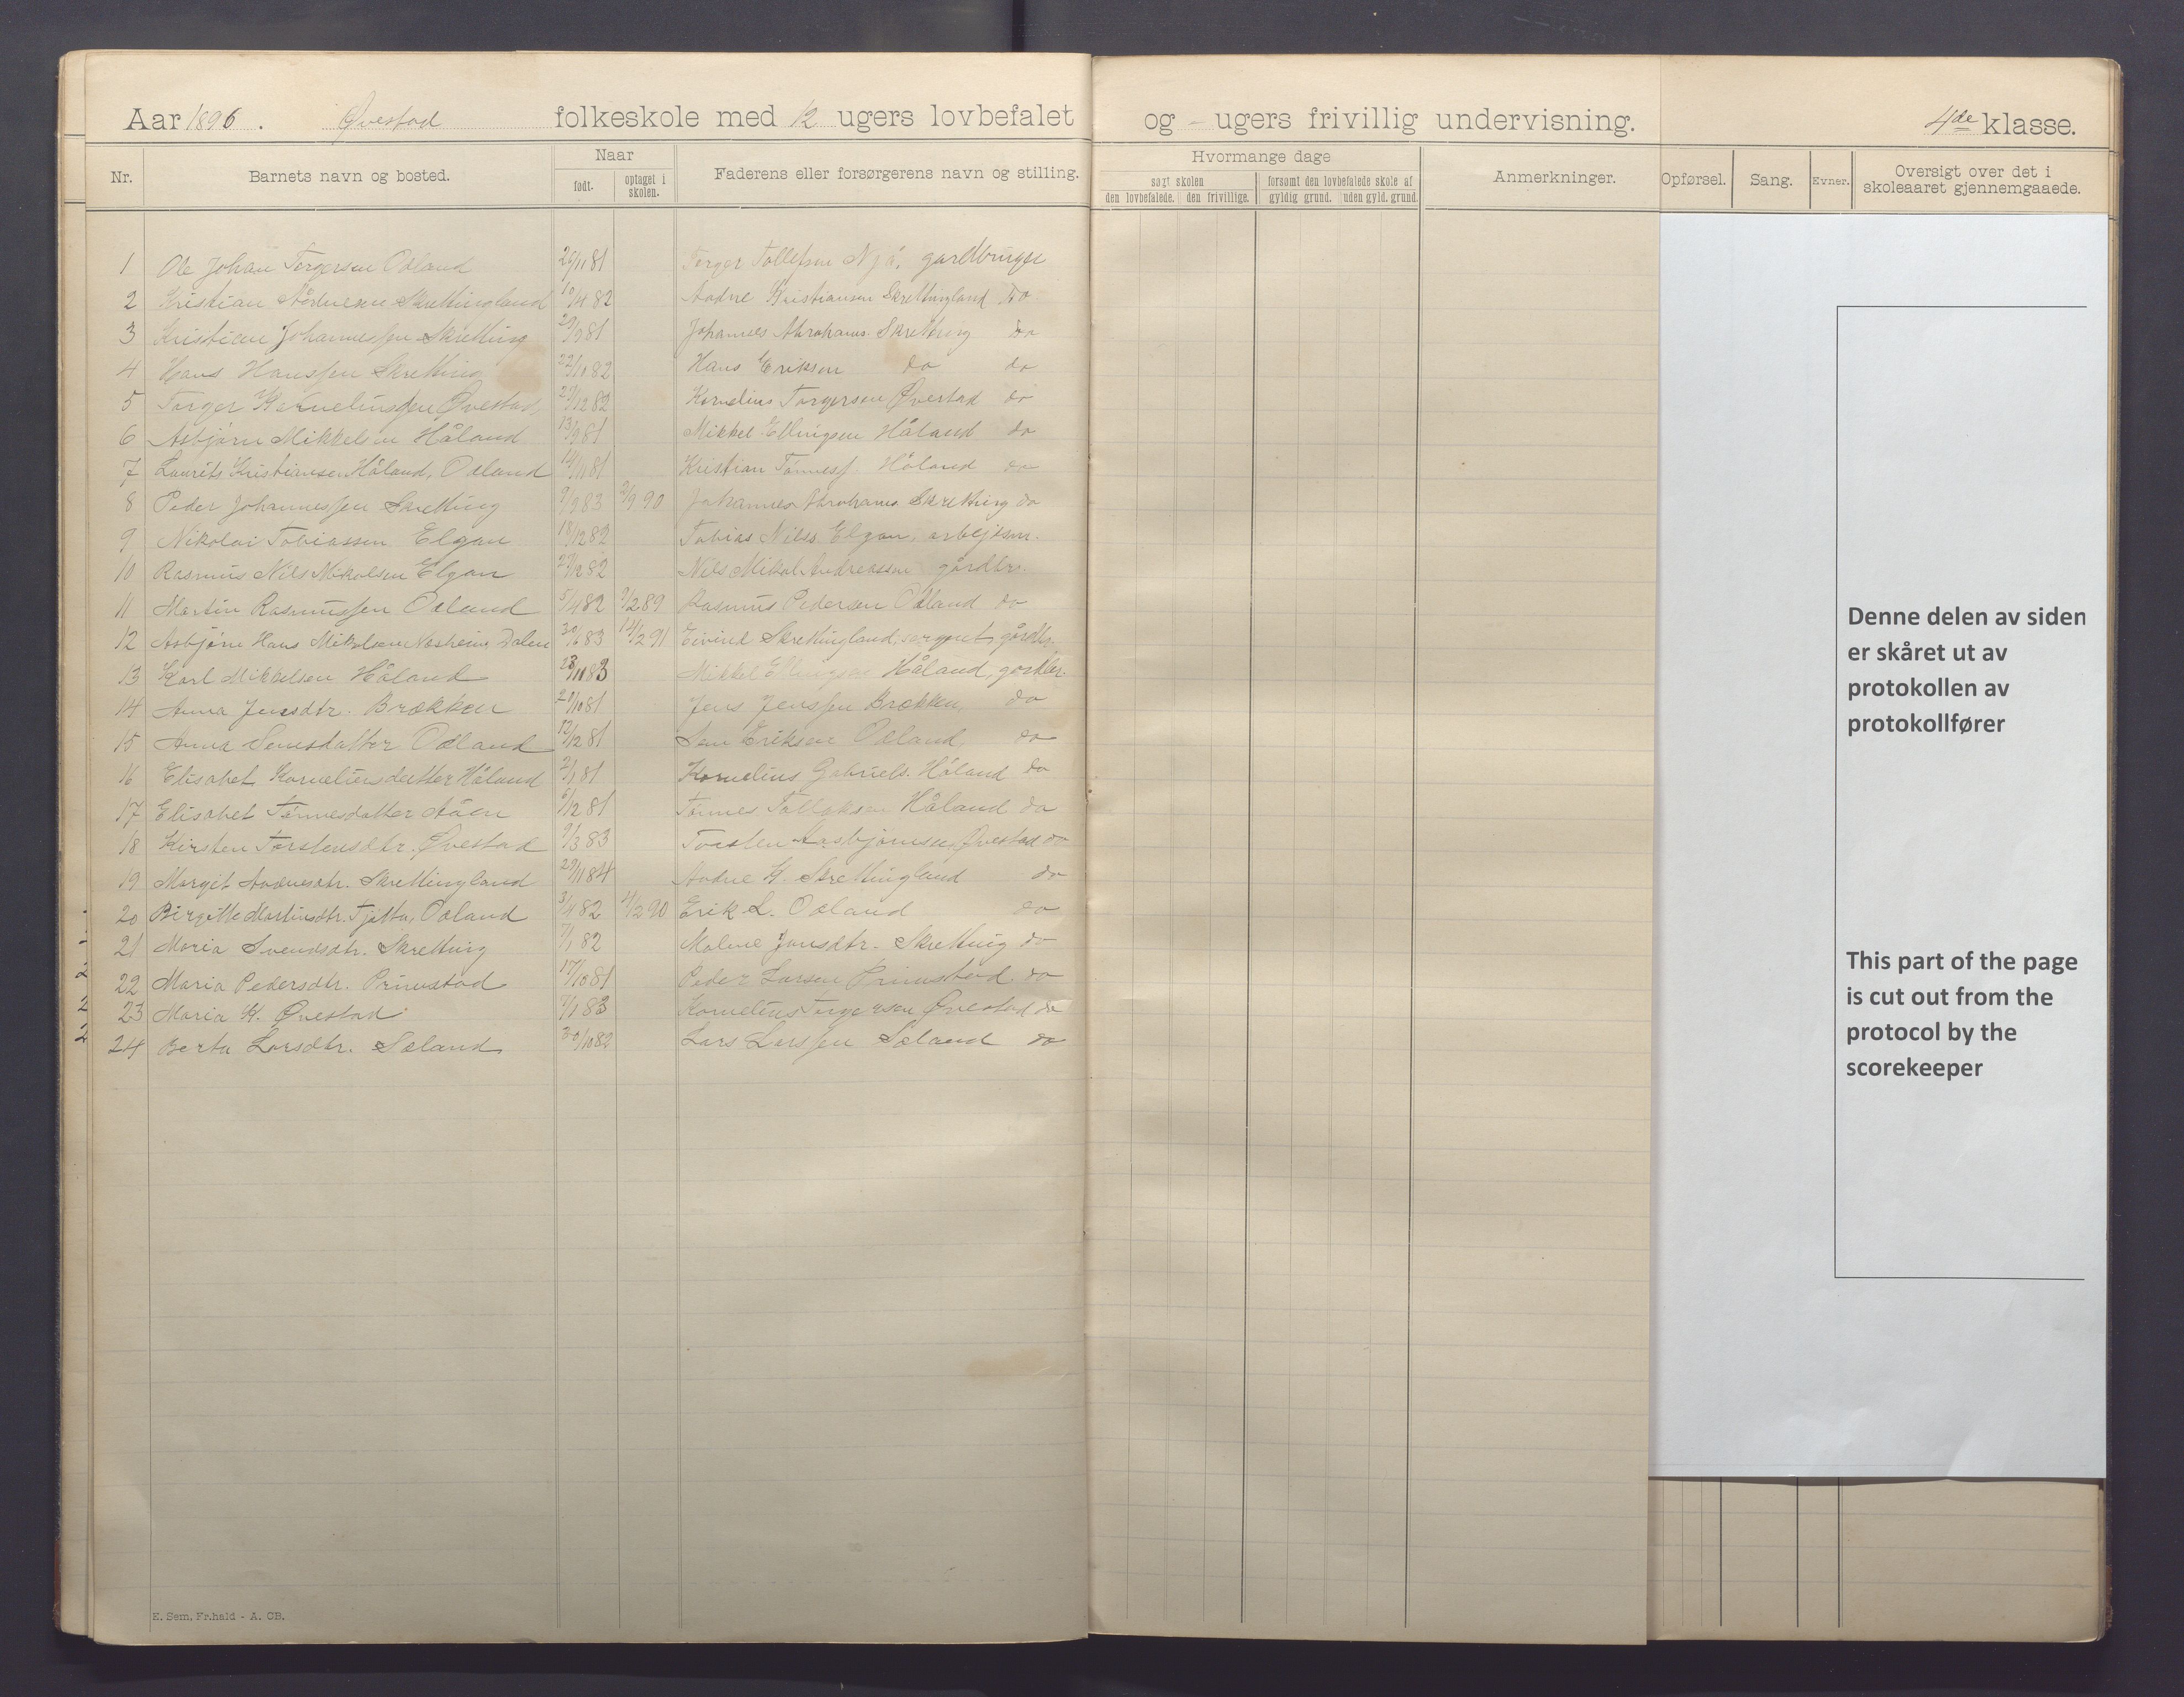 Aar 1896. Øvestad folkeskole med 12 ugers lovbefalet og - ugers frivillig undervisning. 4de klasse.
Nr. Barnets navn og bosted. Naar født. optaget i skolen. Faderens eller forsørgerens navn og stilling. Hvormange dage søgt skolen den lovbefalede. den frivillige. forsømt den lovbefalede skole af gyldig grund. uden gyld. grund. Anmerkninger. Opførsel. Sang. Evner. Oversigt over det i skoleaaret gjennemgaaede.
1 Ole Johan Torgersen Odland 29/11 81 Torger Tollefsen Njå, gardbruger
2 Kristian Ådnesen Skrettingland 10/4 82 Aadne Kristiansen Skrettingland Do
3 Kristian Johannessen Skretting 29/9 81 Johannes Abrahams. Skretting do
4 Hans Hanssen Skretting 22/11 82 Hans Eriksen do do
5 Torger Korneliussen Øvestad, 29/12 82 Kornelius Torgersen Øvestad do
6 Asbjørn Mikkelsen Håland 13/9 81 Mikkel Ellingsen Håland do
7 Laurits Kristiansen Håland, Odland 14/11 81 Kristian Tønness. Håland do
8 Peder Johannessen Skretting 9/9 83 9/9 90 Johannes Abrahams. Skretting do
9 Nikolai Tobiassen Elgan 18/12 82 Tobias Nilss. Elgan, arbejdsm.
10 Rasmus Nils Mikalsen Elgan 27/12 82 Nils Mikal Andreassen gårdbr.
11 Martin Rasmussen Odland 5/4 82 9/2 89 Rasmus Pedersen Odland do
12 Asbjørn Hans Mikalsen Næsheim, Dalen 30/6 83 14/2 91 Eivind Skrettingland, sergent, gårdbr.
13 Karl Mikkelsen Håland 28/11 83 Mikkel Ellingsen Håland, gårdbr.
14 Anna Jensdtr. Brækken 29/10 81 Jens Jenssen Brækken, do
15 Anna Semsdatter Odland 12/12 81 Sem Eriksen Odland, do
16 Elisabet Korneliusdatter Håland 2/1 81 Kornelius Gabriels. Håland do
17 Elisabet Tønnesdatter Aåen 6/12 81 Tønnes Tollaksen Håland do
18 Kirsten Torstensdtr. Øvestad 9/3 83 Torsten Aasbjørnsen, Øvestad do
19 Margit Aadnesdtr. Skrettingland 29/11 84 Aadne K. Skrettingland do
20 Birgitte Martinsdtr. Tjøtta, Odland 3/4 82 4/2 90 Erik L. Odland do
21 Maria Svendsdtr. Skretting 7/1 82 Malene Jonsdtr. Skretting do
22 Maria Pedersdtr. Primstad 17/10 81 Peder Larsen Primstad do
23 Maria K. Øvestad 1/1 83 Kornelius Torgersen Øvestad do
24 Berta Larsdtr. Sæland 30/10 82 Lars Larssen Sæland do
Denne delen av siden
er skåret ut av
protokollen av
protokollfører
This part of the page
is cut out from the
protocol by the
scorekeeper
E. Sem, Fr.hald - A. CB.